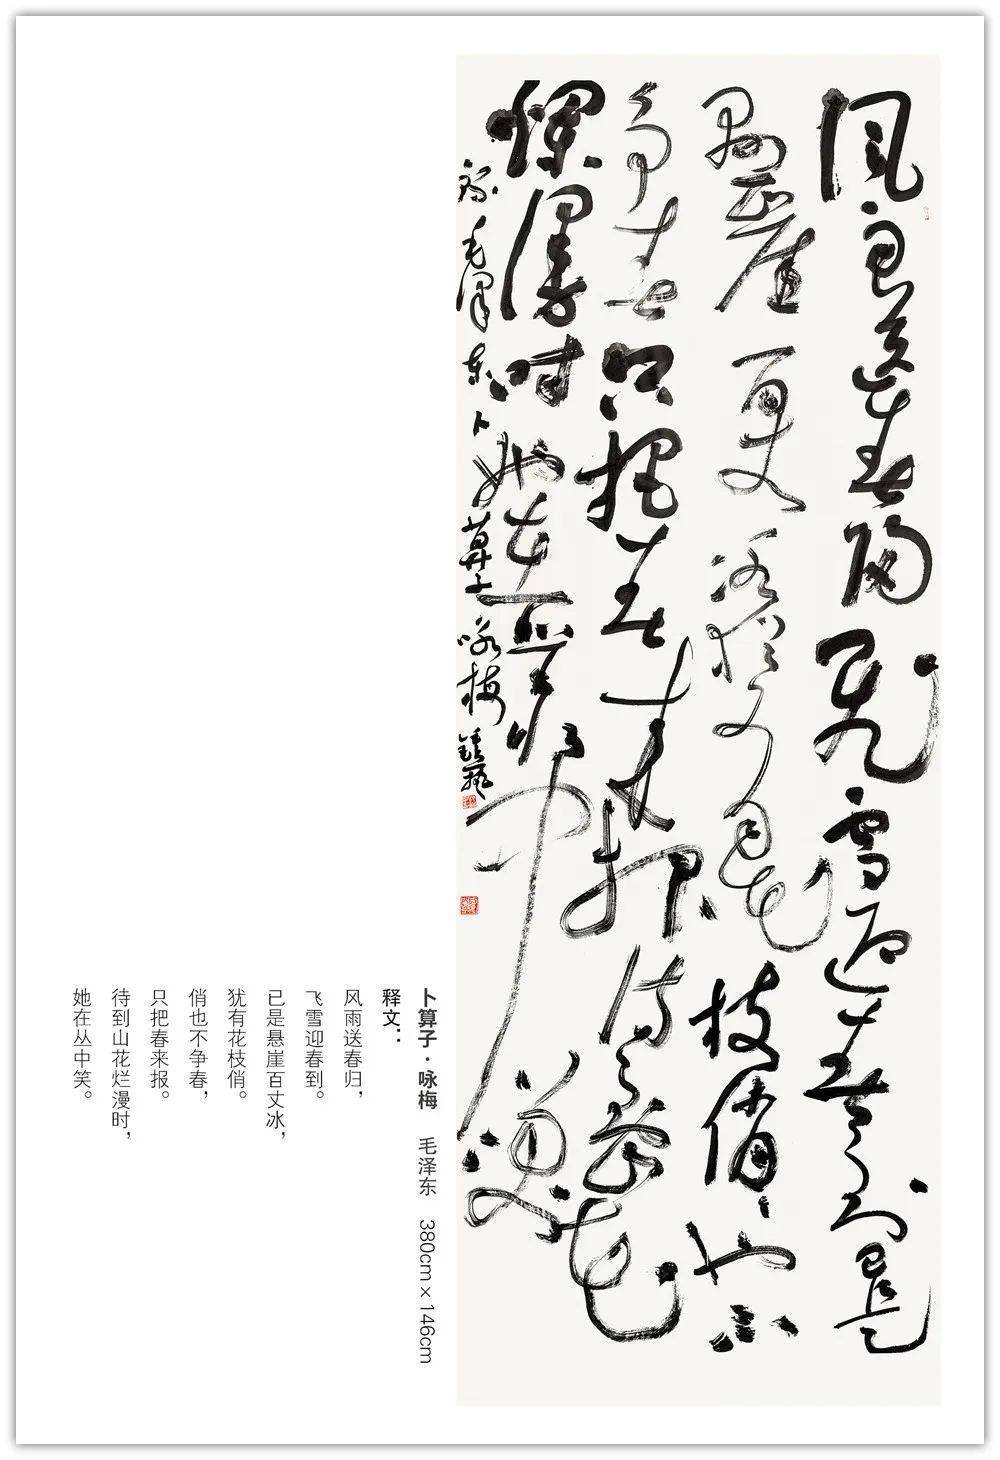 风雨送春归飞雪迎春到已是
悬崖百丈冰犹有花枝俏也不
争春只把春来报待到山花
烂漫时她在丛中笑
录毛泽东卜算子咏梅
卜算子·咏梅 毛泽东 380cm×146cm
释文：
风雨送春归，
飞雪迎春到。
已是悬崖百丈冰，
犹有花枝俏。
俏也不争春，
只把春来报。
待到山花烂漫时，
她在丛中笑。